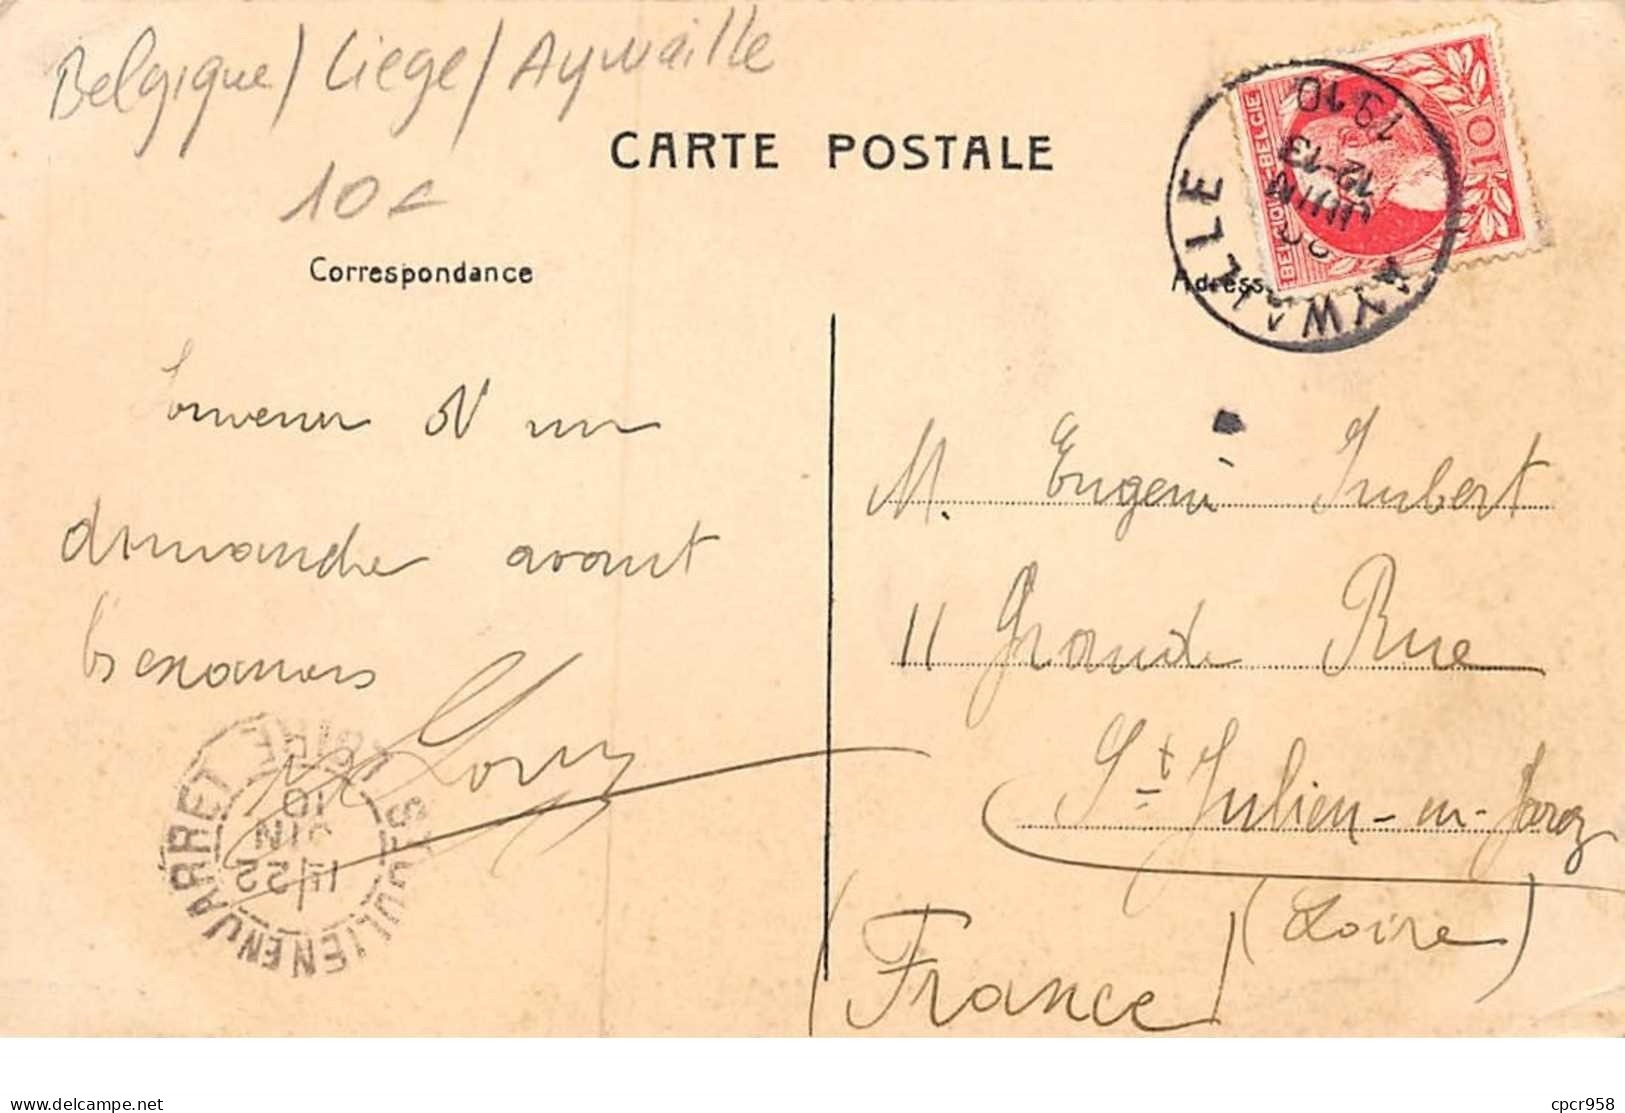 Belgique / Liege / Aywaille
CARTE POSTALE
10c
Correspondance
Adress
BELGIQUE-BELGIE
10
AYWAILLE
JUIN
12-13
1910
Souvenir d'un
dimanche avant
les examens
Louis
M. Eugène Imbert
11 Grande Rue
St Julien-en-Jarez
(Loire)
(France)
ST-JULIEN EN JARRET LOIRE
11 22
JUIN
10
cpcr958